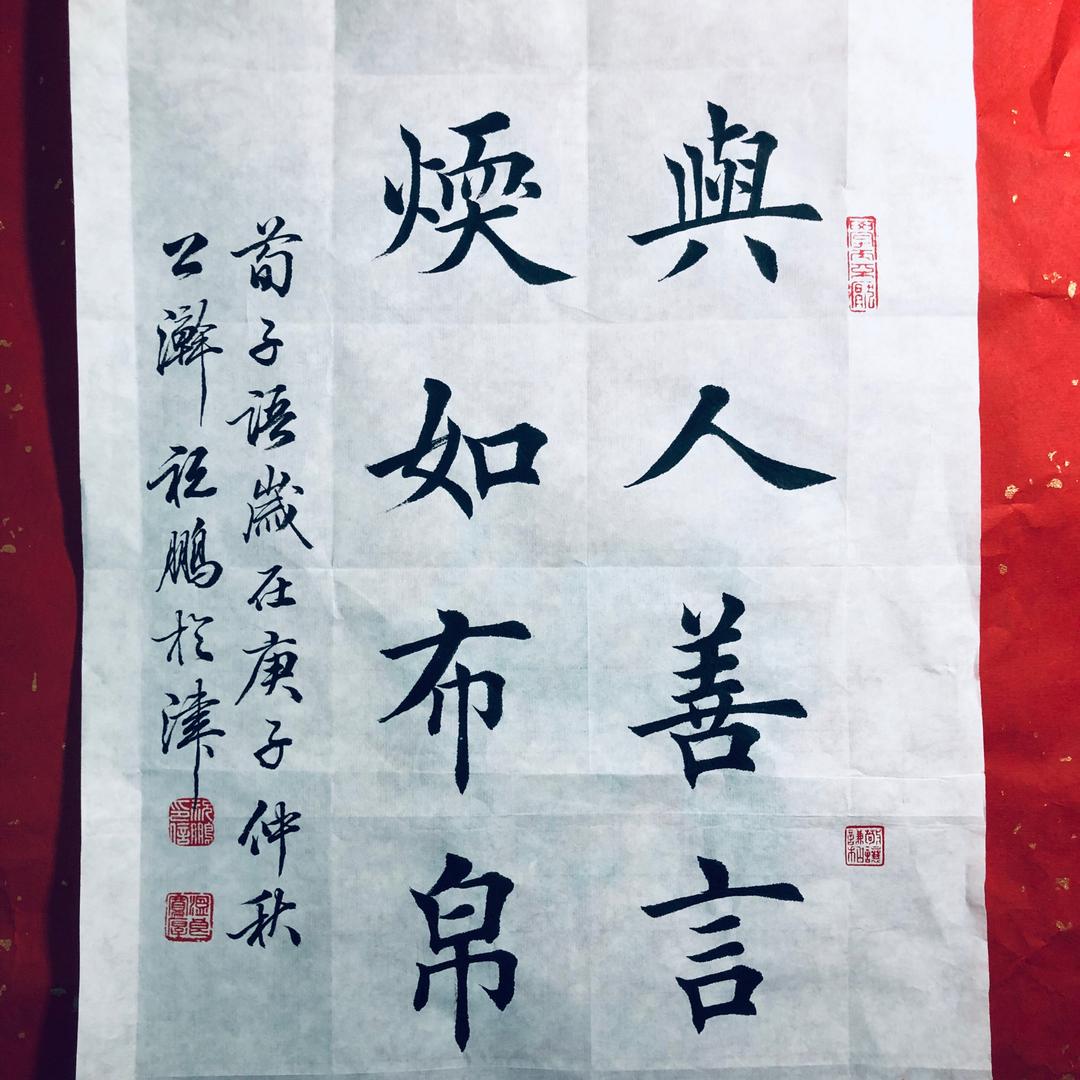 與人善言
煗如布帛
荀子語歲在庚子仲秋
公瀚祝鵬於津